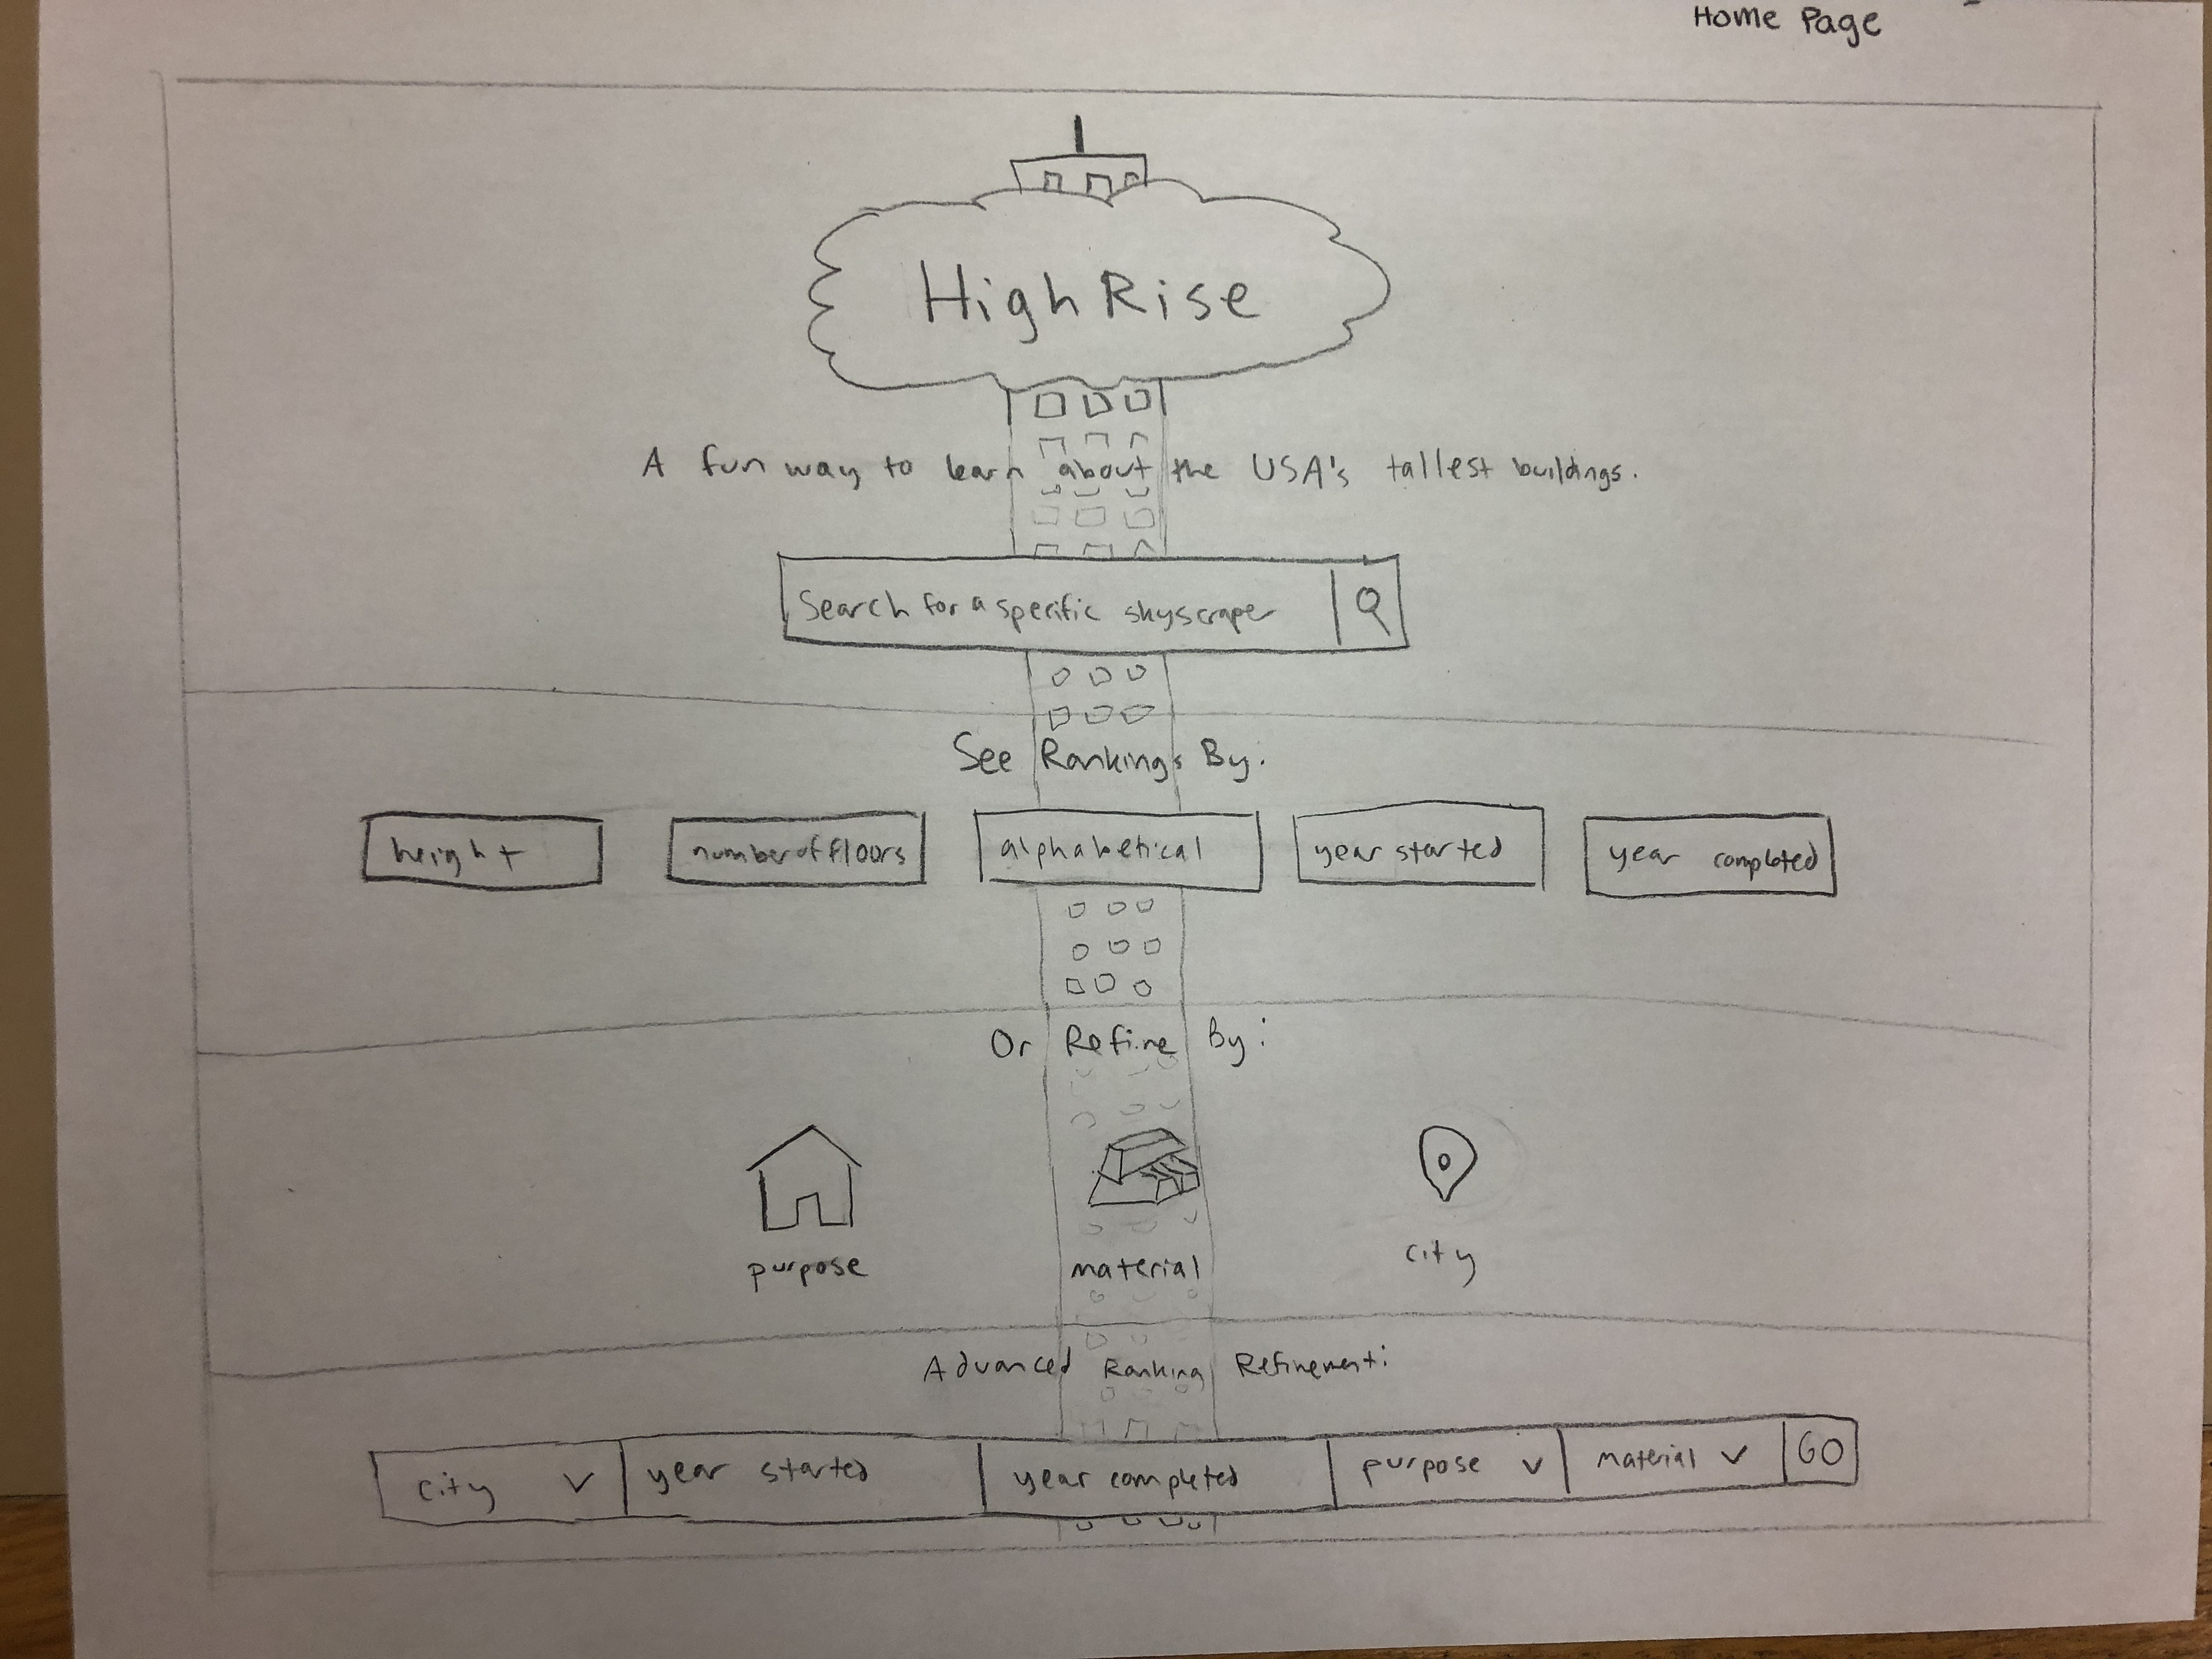 Home Page
High Rise
A fun way to learn about the USA's tallest buildings.
Search for a specific skyscraper
See Rankings By:
height number of floors alphabetical year started year completed
Or Refine By:
purpose material city
Advanced Ranking Refinement:
city v year started year completed purpose v material v GO